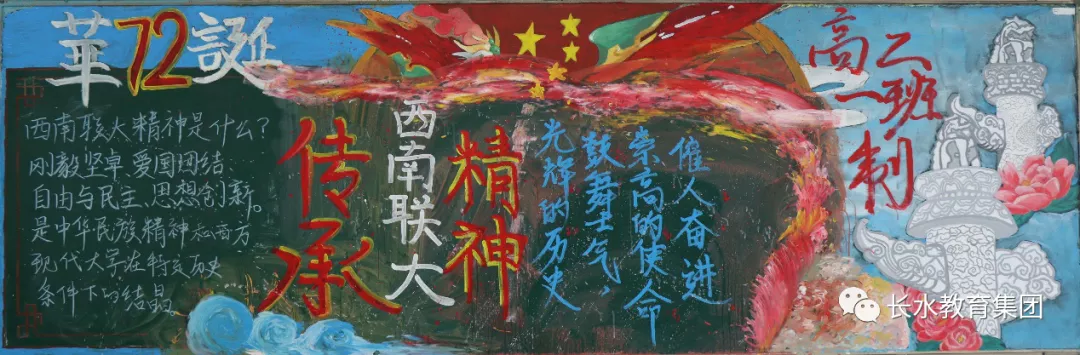 華72誕
西南联大精神是什么？
刚毅坚卓、爱国团结、
自由与民主、思想创新。
是中华民族精神和西方
现代大学在特定历史
条件下的结晶
传承
西南联大
精神
光辉的历史
鼓舞士气，
崇高的使命
催人奋进
高二
一班
制
长水教育集团